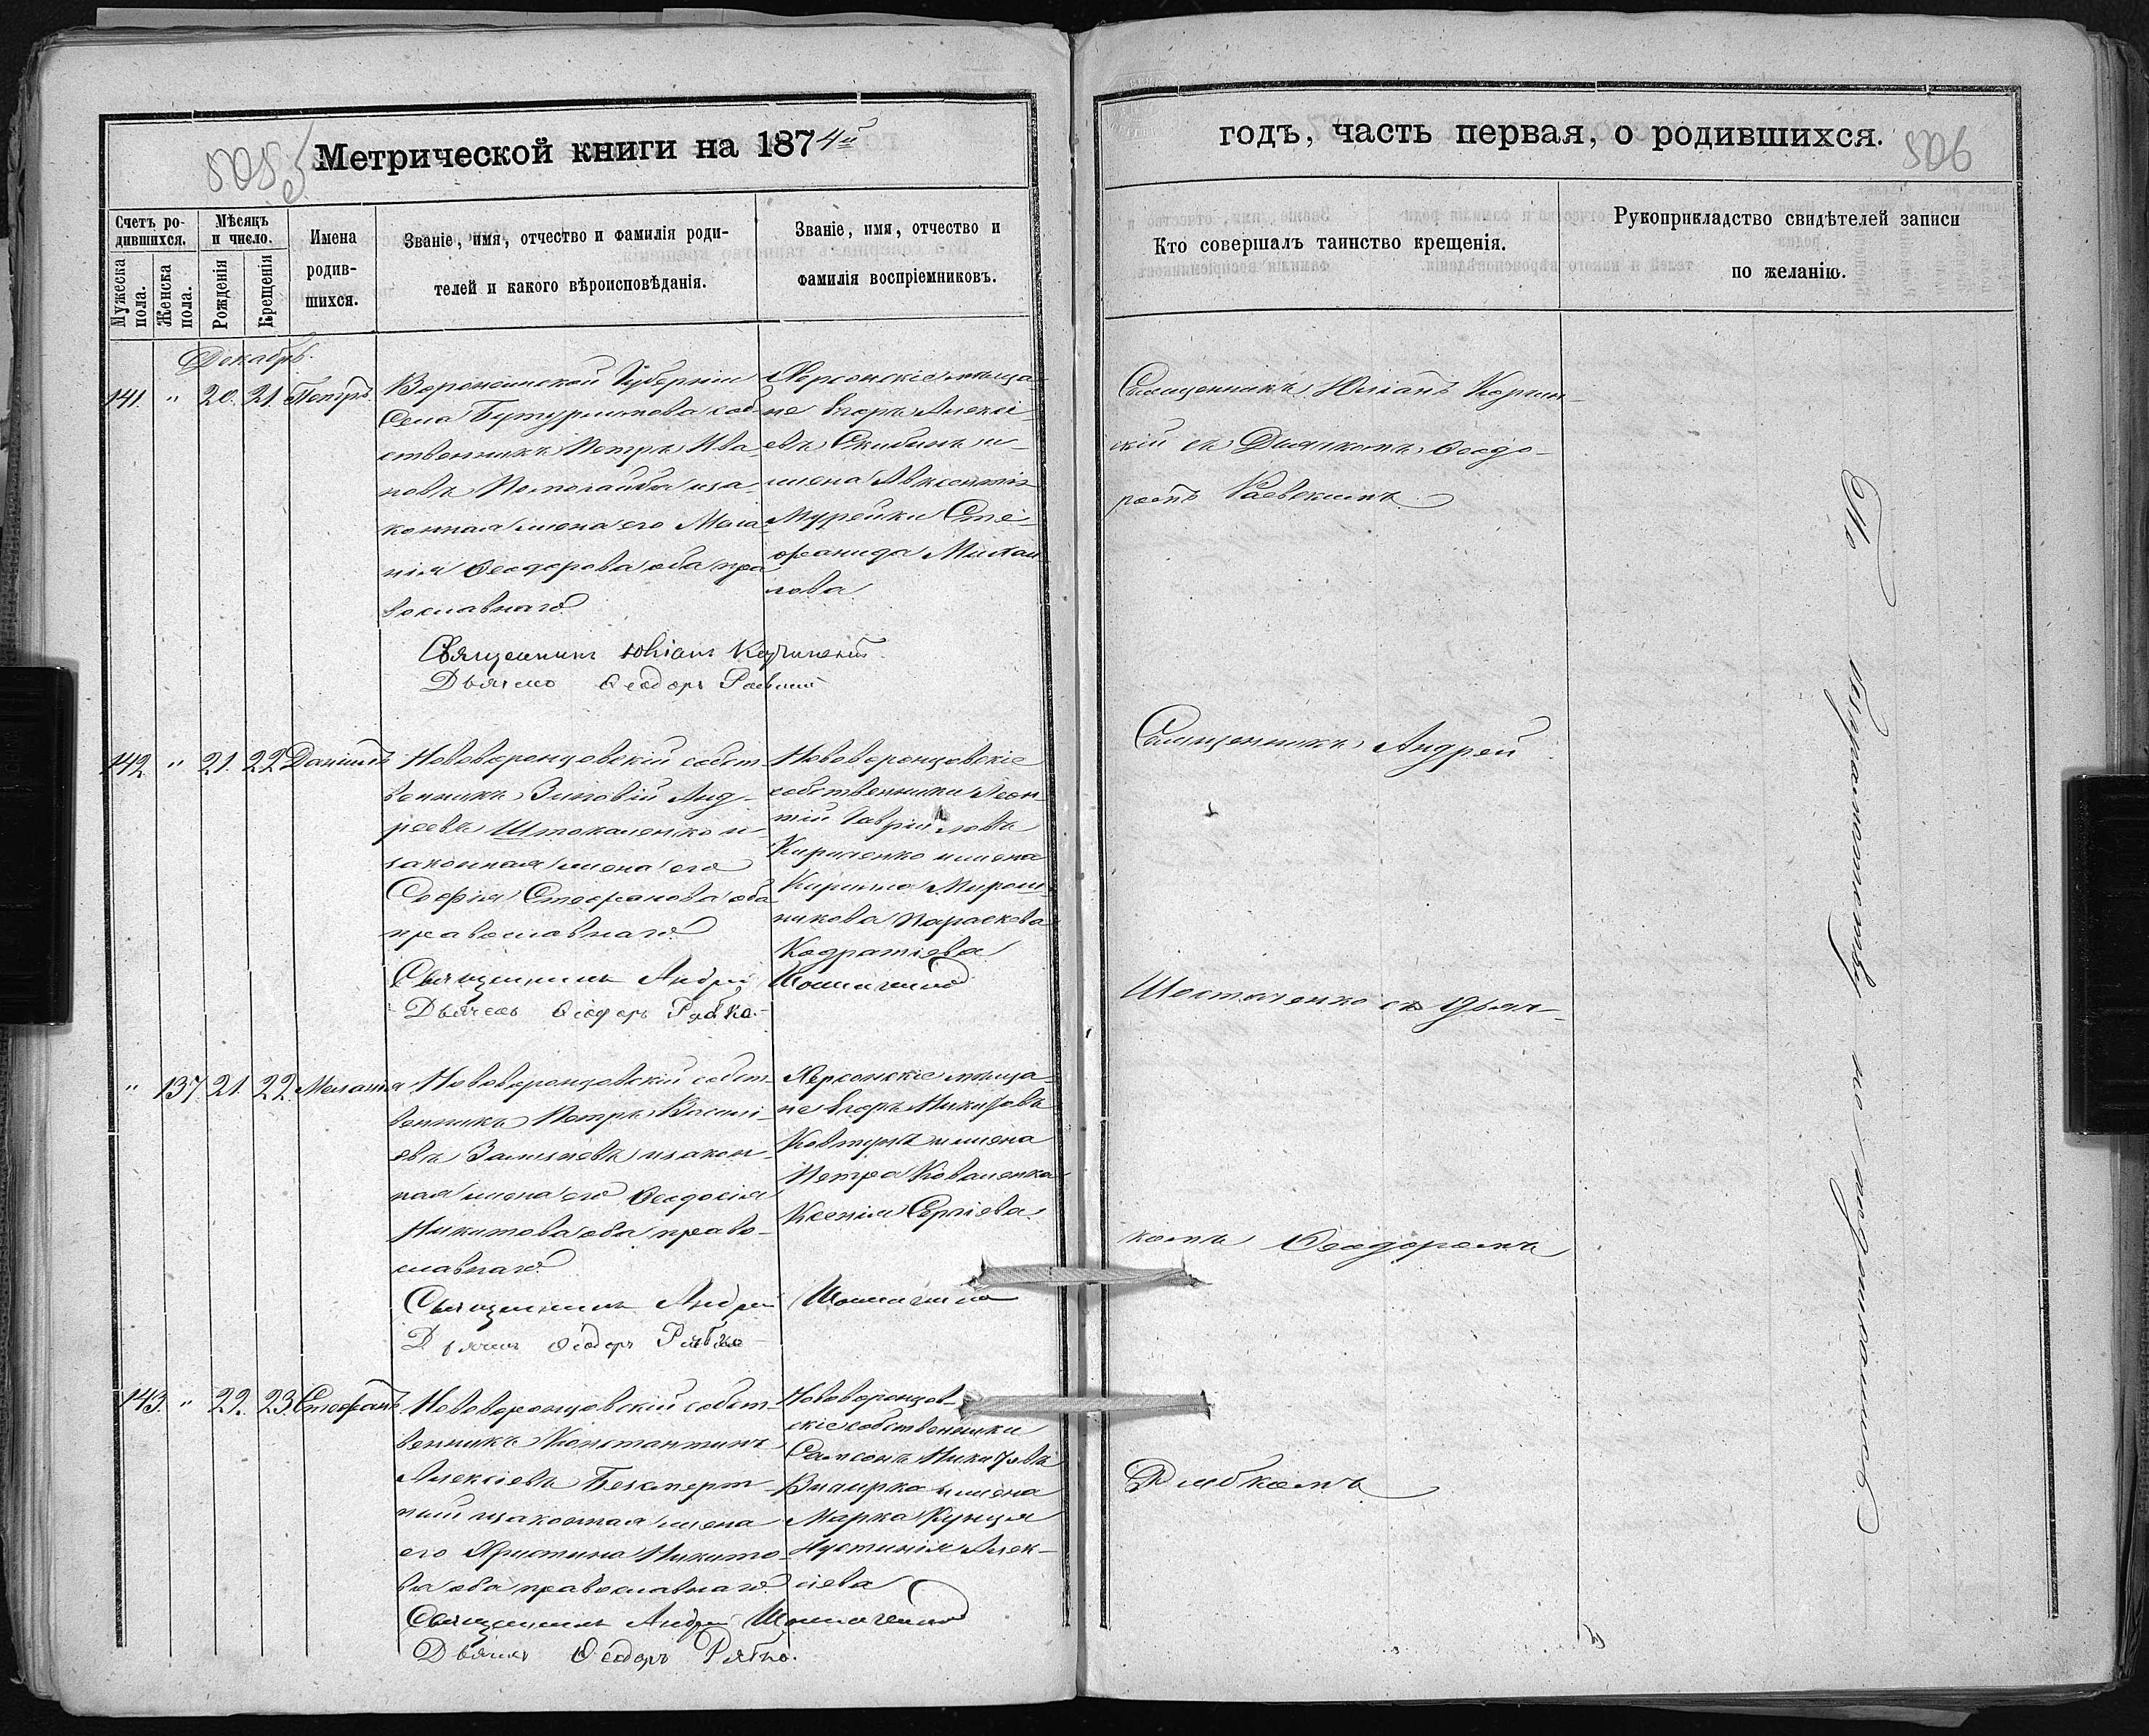 505
Метрической книги на 1874й
Счетъ ро-
дившихся.
Мужеска
пола.
Женска
пола.
Мѣсяцъ
и число.
Рожденія
Крещенія
Имена
родив-
шихся.
Званіе, имя, отчество и фамилія роди-
телей и какого вѣроисповѣданія.
Званіе, имя, отчество и
фамилія воспріемниковъ.
Декабрь.
141. " 20. 21. Петръ.
Воронежской Губерніи
Села Бутурлиновка соб-
ственникъ Петръ Ива-
новъ и за-
конная жена его Мела-
нія Ѳеодорова оба пра
вославнаго
Херсонскіе мѣща-
не Егоръ Алексі-
евъ Скибинъ и
жена Авксентія
Мурейки Сте-
фанида Михаи
лова
Священникъ Юліанъ
Дьячекъ Ѳеодоръ Раевскій
142 " 21. 22 Даніилъ
Нововоронцовскій собст-
венникъ Зиновій Анд-
реевъ Штокаленко и
законная жена его
Софія Стефанова оба
православнаго
Нововоронцовскіе
собственники Леон-
тій Гавриловъ
Кириченко и жена
Кирила Мирош-
никова Параскева
Кодратіева
Священникъ Андрей
Дьячекъ Ѳеодоръ Рябко.
" 137. 21. 22. Меланія
Нововоронцовскій собст-
венникъ Петръ Василі-
евъ и закон-
ная жена его Ѳеодосія
Никитова оба право-
славнаго
Херсонскіе мѣща-
не Егоръ Никитовъ
Ковтунъ и жена
Петра Коваленка
Ксенія Сергіева.
Священникъ Андрей
Дьячекъ Ѳеодоръ Рябко
143. " 22. 23. Стефанъ
Нововоронцовскій собст-
венникъ Константинъ
Алексіевъ Безсмерт-
ный и законная жена
его Христина Никито-
ва оба православнаго
Нововоронцов-
скіе собственники
Самсонъ Никитовъ
и жена
Марка Кунця
Іустинія Алек-
сіева
Священникъ Андрей
Дьячекъ Ѳеодоръ Рябко.
годъ, часть первая, о родившихся.
506
Кто совершалъ таинство крещенія.
Рукоприкладство свидѣтелей записи
по желанію.
Священникъ Юліанъ
скій съ Дьячкомъ Ѳеодо-
ромъ Раевскимъ
Священникъ Андрей
съ Дьяч-
комъ Ѳеодоромъ
Рябкомъ